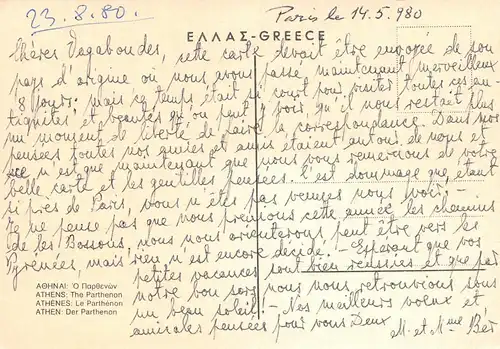 23.8.80.
Paris le 14.5.980
ΕΛΛΑΣ-GREECE
Chères Vagabondes, cette carte devait être envoyée de son
pays d'origine où nous avons passé maintenant merveilleux
8 jours; mais ce temps était si court pour visiter toutes ces an-
tiquités et beautés qu'on peut y voir qu'il nous restait plus
nu' moment de liberté de faire la correspondance. Dans nos
pensées toutes nos amies et amis étaient autour de nous et
ce n'est que maintenant que nous vous remercions de votre
belle carte et les gentilles pensées. C'est dommage que, étant
si près de Paris, vous n'êtes pas venues nous voir; -
Je ne pense pas que nous prenions cette année les chemins
de les Bossons, nous nous orienterons peut être vers les
Pyrénées, mais rien n'est encore décidé. - Espérant que vos
petites vacances sont bien réussies et que par
notre bon sort nous nous retrouvions sous
un beau soleil - Nos meilleurs voeux et
amicales pensées pour vous Deux
M. et Mme Bér
ΑΘΗΝΑΙ: Ὁ Παρθενών
ATHENS: The Parthenon
ATHENES: Le Parthénon
ATHEN: Der Parthenon